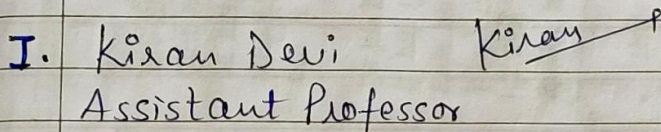 I. Kiran Devi Kiran
Assistant Professor